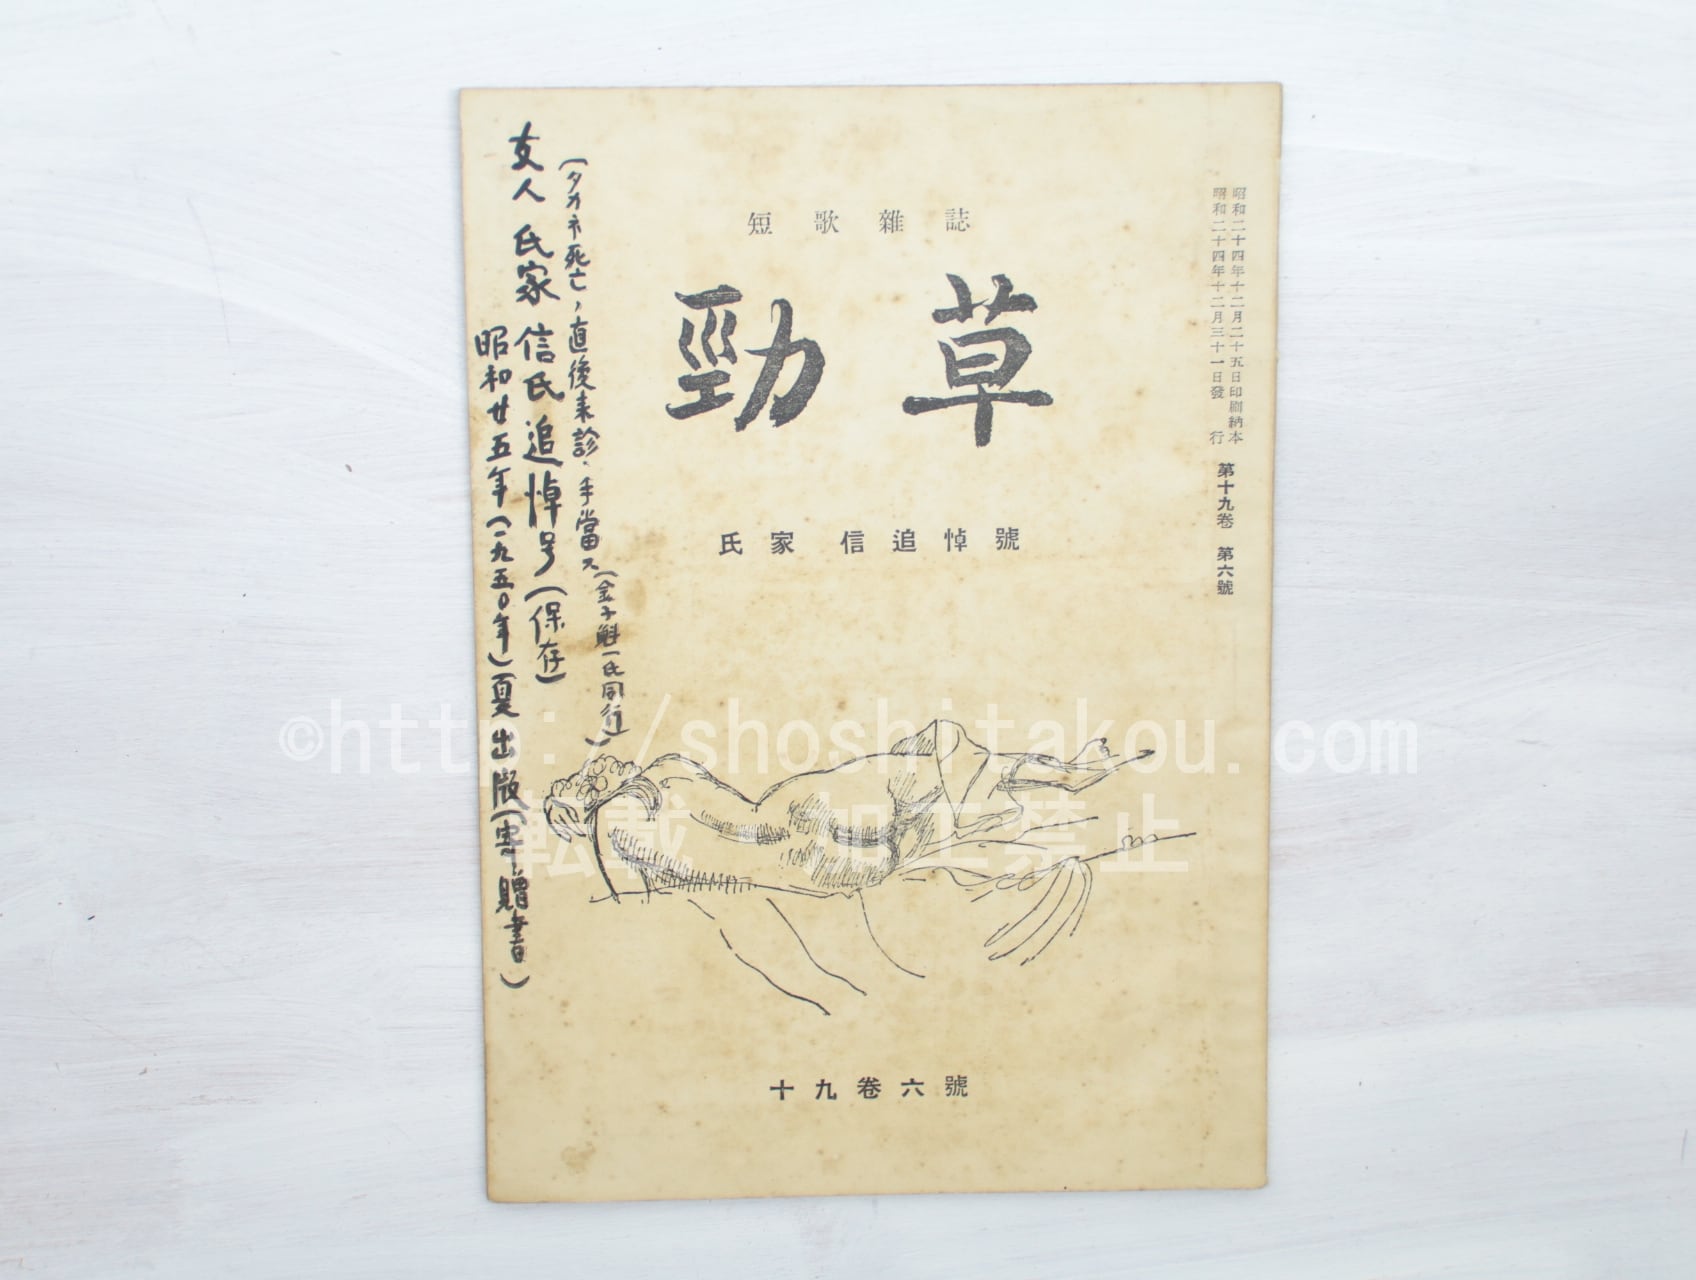 昭和二十四年十二月二十五日印刷納本
昭和二十四年十二月三十一日發行
第十九卷 第六號
短歌雜誌
勁草
氏家 信追悼號
(タカネ死亡、直後来診、手當ス(金子魁一氏同行))
友人氏家信氏追悼号(保存)
昭和廿五年(一九五〇年)夏出版(寄贈書)
©http://shoshitakou.com
転載 加工禁止
十九卷六號